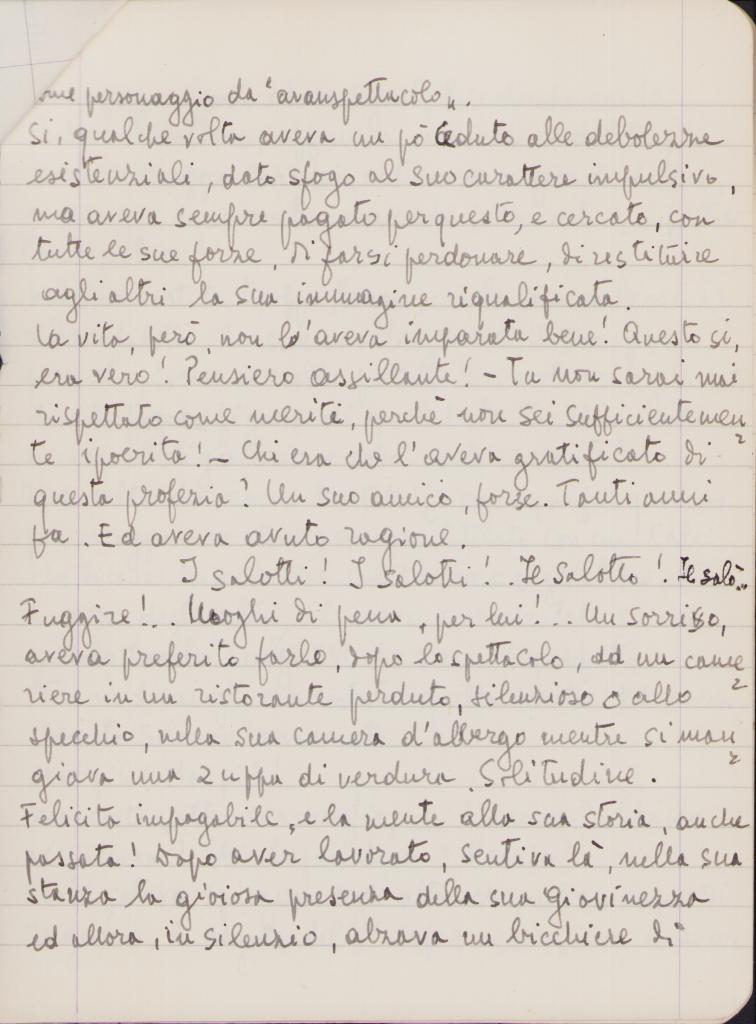 ome personaggio da "avanspettacolo".
Si, qualche volta aveva un pò ceduto alle debolezze
esistenziali, dato sfogo al suo carattere impulsivo,
ma aveva sempre pagato per questo, e cercato, con
tutte le sue forze, di farsi perdonare, di restituire
agli altri la sua immagine riqualificata.
La vita, però, non l'aveva imparata bene! Questo si,
era vero! Pensiero assillante! - Tu non sarai mai
rispettato come meriti, perchè non sei sufficientemen=
te ipocrita! - Chi era che l'aveva gratificato di
questa profezia? Un suo amico, forse. Tanti anni
fa. Ed aveva avuto ragione.
I salotti! I salotti! . Il salotto! Il salò..
Fuggire!.. Luoghi di pena, per lui!.. Un sorriso,
aveva preferito farlo, dopo lo spettacolo, ad un came=
riere in un ristorante perduto, silenzioso o allo
specchio, nella sua camera d'albergo mentre si man=
giava una zuppa di verdura. Solitudine.
Felicità impagabile, e la mente alla sua storia, anche
passata! Dopo aver lavorato, sentiva là, nella sua
stanza la gioiosa presenza della sua giovinezza
ed allora, in silenzio, alzava un bicchiere di